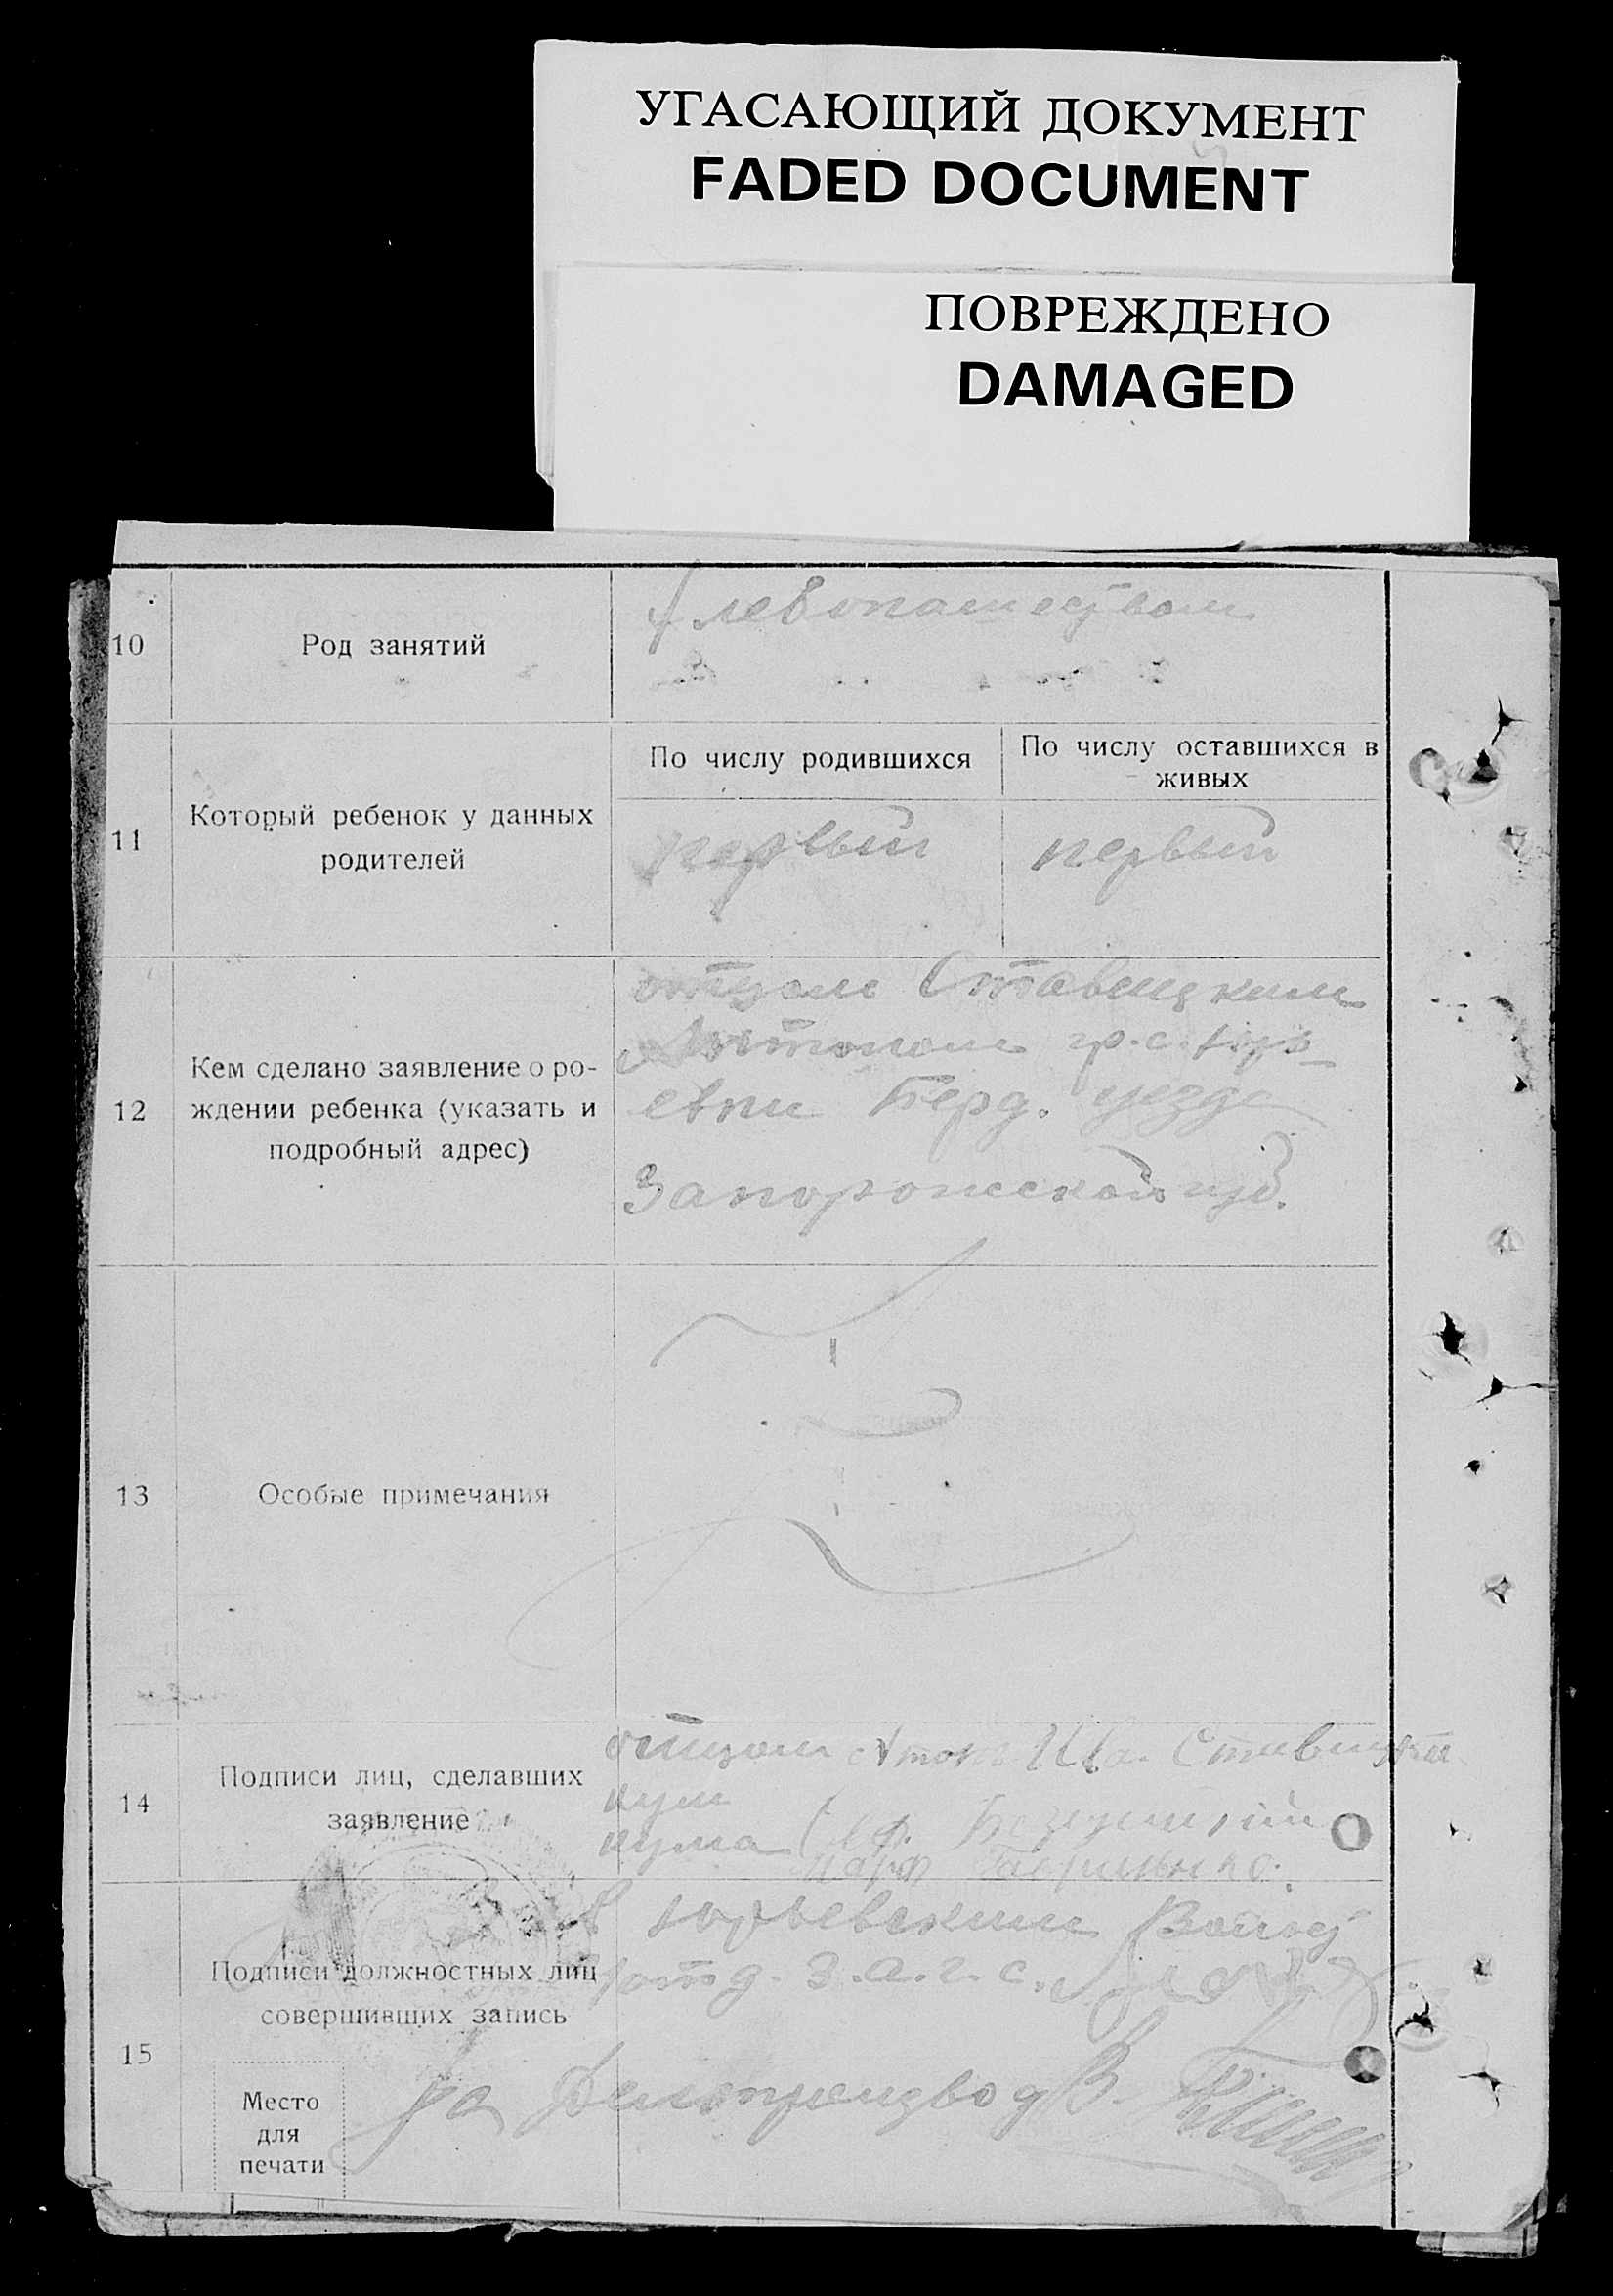 УГАСАЮЩИЙ ДОКУМЕНТ
FADED DOCUMENT
ПОВРЕЖДЕНО
DAMAGED
10
Род занятий
хлебопашеством
11
Который ребенок у данных
родителей
По числу родившихся
По числу оставшихся в
живых
первый
первый
12
Кем сделано заявление о ро-
ждении ребенка (указать и
подробный адрес)
отцом Ставицким
Антоном гр. с. Юрь
евки Берд. уезда
Запорожской губ.
13
Особые примечания
14
Подписи лиц, сделавших
заявление
отцом Ставицкий
кум
кума
15
Подписи должностных лиц
совершивших запись
Место
для
печати
Юрьевским
отд З.А.Г.С.
за Делопроизвод